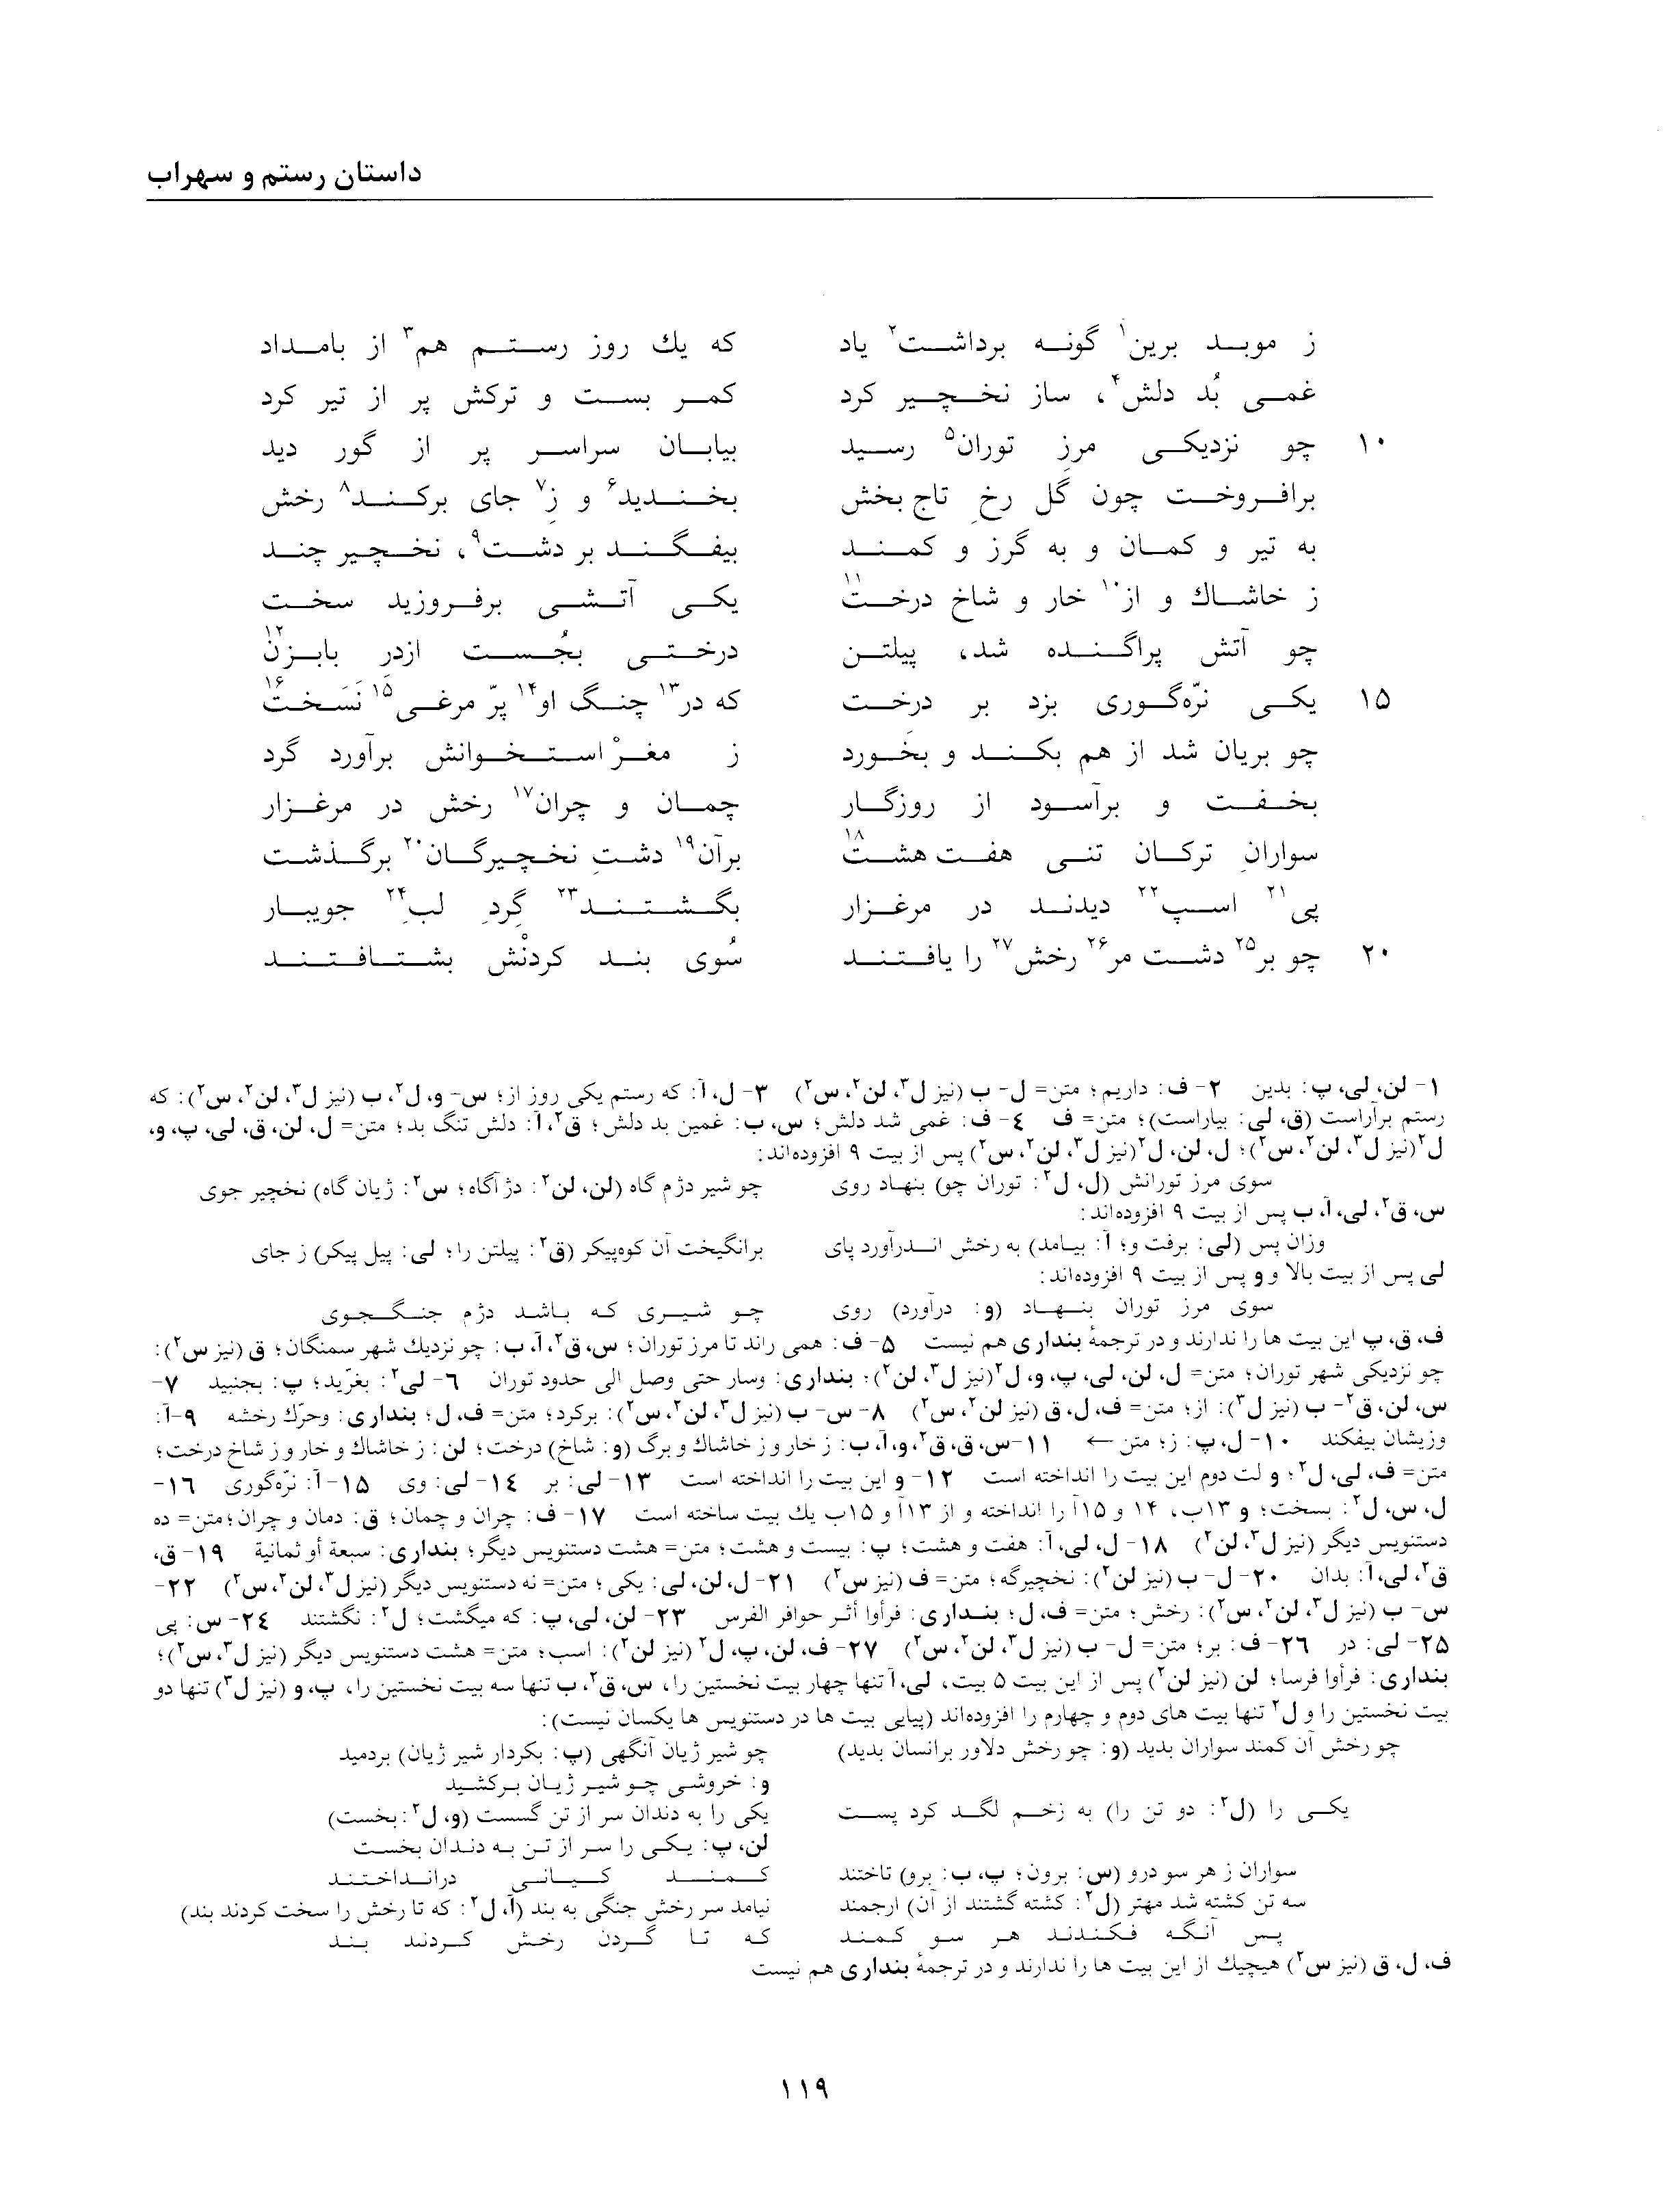 داستان رستم و سهراب
ز موبد برین¹ گونه برداشت² یاد که یك روز رستم هم³ از بامداد
غمی بُد دلش⁴، ساز نخچیر کرد کمر بست و ترکش پر از تیر کرد
۱۰ چو نزدیکی مرزِ توران⁵ رسید بیابان سراسر پر از گور دید
برافروخت چون گل رخِ تاج بخش بخندید⁶ و ز⁷ جای برکند⁸ رخش
به تیر و کمان و به گرز و کمند بیفگند بر دشت⁹، نخچیر چند
ز خاشاك و از¹⁰ خار و شاخ درخت¹¹ یکی آتشی برفروزید سخت
چو آتش پراگنده شد، پیلتن درختی بجُست ازدرِ بابزن¹²
۱۵ یکی نرّه‌گوری بزد بر درخت که در¹³ چنگ او¹⁴ پرّ مرغی¹⁵ نَسَخت¹⁶
چو بریان شد از هم بکند و بخَورد ز مغزْ استخوانش برآورد گرد
بخفت و برآسود از روزگار چمان و چران¹⁷ رخش در مرغزار
سوارانِ ترکان تنی هفت هشت¹⁸ برآن¹⁹ دشتِ نخچیرگان²⁰ برگذشت
پی²¹ اسپ²² دیدند در مرغزار بگشتند²³ گِردِ لبِ²⁴ جویبار
۲۰ چو بر²⁵ دشت مر²⁶ رخش²⁷ را یافتند سُوی بند کردنْش بشتافتند
۱- لن، لی، پ: بدین ۲- ف: داریم؛ متن= ل- ب (نیز ل³، لن²، س²) ۳- ل، آ: که رستم یکی روز از؛ س- و، ل²، ب (نیز ل³، لن²، س²): که
رستم برآراست (ق، لی: بیاراست)؛ متن= ف ٤- ف: غمی شد دلش؛ س، ب: غمین بد دلش؛ ق²، آ: دلش تنگ بد؛ متن= ل، لن، ق، لی، پ، و،
ل²(نیز ل³، لن²، س²)؛ ل، لن، ل²(نیز ل³، لن²، س²) پس از بیت ۹ افزوده‌اند:
سوی مرز تورانش (ل، ل²: توران چو) بنهاد روی چو شیر دژم گاه (لن، لن²: دژ آگاه؛ س²: ژیان گاه) نخچیر جوی
س، ق²، لی، آ، ب پس از بیت ۹ افزوده‌اند:
وزان پس (لی: برفت و؛ آ: بیامد) به رخش اندرآورد پای برانگیخت آن کوه‌پیکر (ق²: پیلتن را؛ لی: پیل پیکر) ز جای
لی پس از بیت بالا و و پس از بیت ۹ افزوده‌اند:
سوی مرز توران بنهاد (و: درآورد) روی چو شیری که باشد دژم جنگجوی
ف، ق، پ این بیت ها را ندارند و در ترجمهٔ بنداری هم نیست ۵- ف: همی راند تا مرز توران؛ س، ق²، آ، ب: چو نزدیك شهر سمنگان؛ ق (نیز س²):
چو نزدیکی شهر توران؛ متن= ل، لن، لی، پ، و، ل²(نیز ل³، لن²)؛ بنداری: وسار حتی وصل الی حدود توران ٦- لی²: بغرّید؛ پ: بجنبید ۷-
س، لن، ق²- ب (نیز ل³): از؛ متن= ف، ل، ق (نیز لن²، س²) ۸- س- ب (نیز ل³، لن²، س²): برکرد؛ متن= ف، ل؛ بنداری: وحرّك رخشه ۹-آ:
وزیشان بیفکند ۱۰- ل، پ: ز؛ متن ← ۱۱-س، ق، ق²، و، آ، ب: ز خار و ز خاشاك و برگ (و: شاخ) درخت؛ لن: ز خاشاك و خار و ز شاخ درخت؛
متن= ف، لی، ل²؛ و لت دوم این بیت را انداخته است ۱۲- و این بیت را انداخته است ۱۳- لی: بر ۱٤- لی: وی ۱۵- آ: نرّه‌گوری ۱٦-
ل، س، ل²: بسخت؛ و ۱۳ب، ۱۴ و ۱۵آ را انداخته و از ۱۳آ و ۱۵ب یك بیت ساخته است ۱۷- ف: چران و چمان؛ ق: دمان و چران؛ متن= ده
دستنویس دیگر (نیز ل³، لن²) ۱۸- ل، لی، آ: هفت و هشت؛ پ: بیست و هشت؛ متن= هشت دستنویس دیگر؛ بنداری: سبعة أو ثمانیة ۱۹- ق،
ق²، لی، آ: بدان ۲۰- ل- ب (نیز لن²): نخچیرگه؛ متن= ف (نیز س²) ۲۱- ل، لن، لی: یکی؛ متن= نه دستنویس دیگر (نیز ل³، لن²، س²) ۲۲-
س- ب (نیز ل³، لن²، س²): رخش؛ متن= ف، ل؛ بنداری: فرأوا أثر حوافر الفرس ۲۳- لن، لی، پ: که میگشت؛ ل²: نگشتند ۲٤- س: پی
۲۵- لی: در ۲٦- ف: بر؛ متن= ل- ب (نیز ل³، لن²، س²) ۲۷- ف، لن، پ، ل² (نیز لن²): اسب؛ متن= هشت دستنویس دیگر (نیز ل³، س²)؛
بنداری: فرأوا فرسا؛ لن (نیز لن²) پس از این بیت ۵ بیت، لی، آ تنها چهار بیت نخستین را، س، ق²، ب تنها سه بیت نخستین را، پ، و (نیز ل³) تنها دو
بیت نخستین را و ل² تنها بیت های دوم و چهارم را افزوده‌اند (پیاپی بیت ها در دستنویس ها یکسان نیست):
چو رخش آن کمند سواران بدید (و: چو رخش دلاور برانسان بدید) چو شیر ژیان آنگهی (پ: بکردار شیر ژیان) بردمید
و: خروشی چو شیر ژیان برکشید
یکی را (ل²: دو تن را) به زخم لگد کرد پست یکی را به دندان سر از تن گسست (و، ل²: بخست)
لن، پ: یکی را سر از تن به دندان بخست
سواران ز هر سو درو (س: برون؛ پ، ب: برو) تاختند کمند کیانی درانداختند
سه تن کشته شد مهتر (ل²: کشته گشتند از آن) ارجمند نیامد سر رخش جنگی به بند (آ، ل²: که تا رخش را سخت کردند بند)
پس آنگه فکندند هر سو کمند که تا گردن رخش کردند بند
ف، ل، ق (نیز س²) هیچیك از این بیت ها را ندارند و در ترجمهٔ بنداری هم نیست
۱۱۹